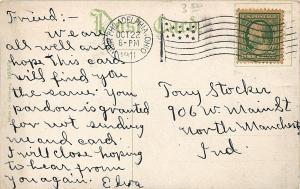 Post Card
Friend:-
We are
all well and
hope this card
will find you
the same. You
pardon is granted
for not sending
me and card.
I will close hoping
to hear from
you again. Elva
PHILADELPHIA, OHIO
OCT 22
6-PM
1911
Tony Stocker
906 W. Main St
North Manchester
Ind.